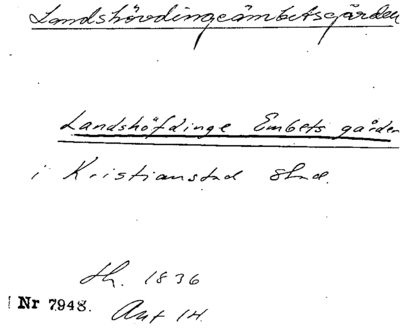 Landshövdingeämbetsgården
Landshöfdinge Embets gården
i Kristianstad
1836
Nr 7948.
Ant 14